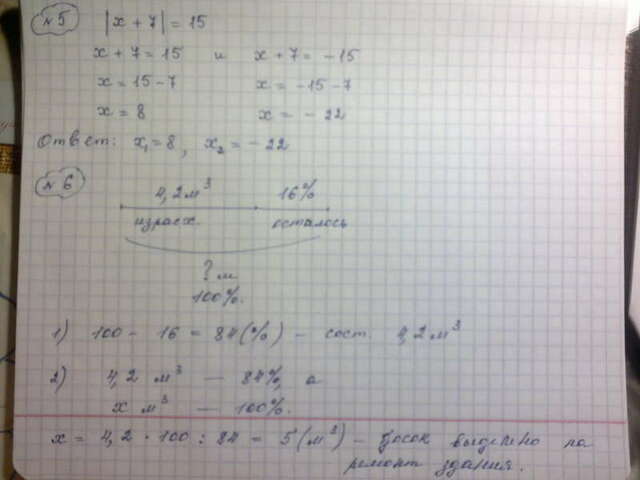 №5 |x + 7| = 15
x + 7 = 15 и x + 7 = -15
x = 15 - 7 x = -15 - 7
x = 8 x = - 22
Ответ: x₁ = 8, x₂ = - 22
№6
4,2 м³ 16%
израсх. осталось
? м
100%.
1) 100 - 16 = 84 (%) - сост. 4,2 м³
2) 4,2 м³ — 84%, а
x м³ — 100%.
x = 4,2 · 100 : 84 = 5 (м³) - досок выделено на
ремонт здания.